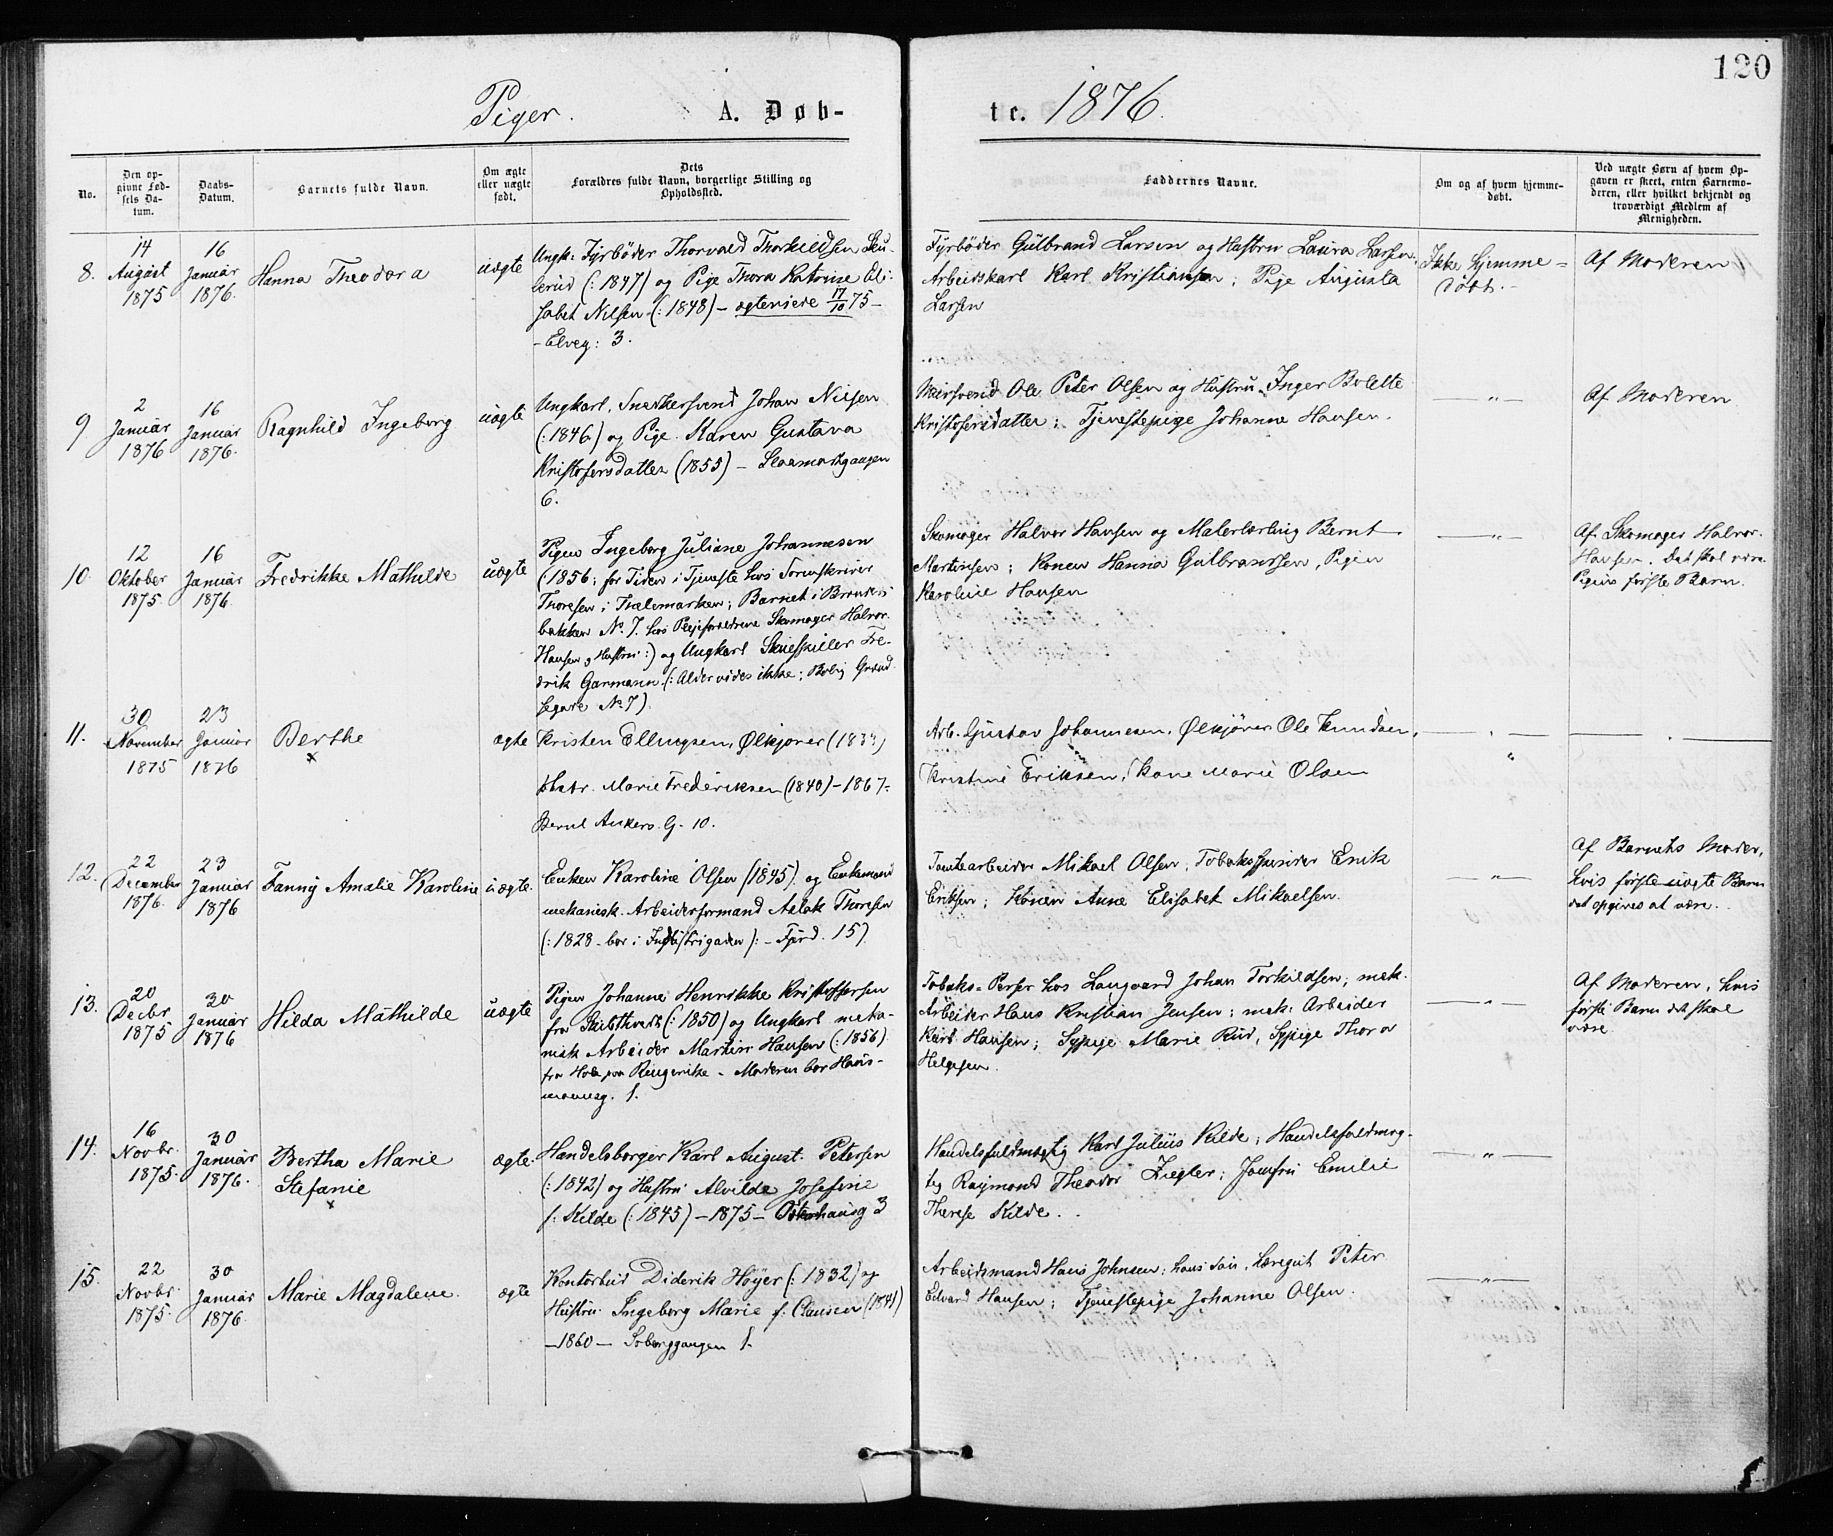 120
Piger. A. Døb-
te. 1876.
No.
Den op-
givne Fød-
sels Da-
tum.
Daabs-
Datum.
Barnets fulde Navn.
Om ægte
eller uægte
født.
Dets
Forældres fulde Navn, borgerlige Stilling og
Opholdssted.
Faddernes Navne.
Om og af hvem hjemme-
døbt.
Ved uægte Børn af hvem Op-
gaven er skeet, enten Barnemo-
deren, eller hvilket bekjendt og
troværdigt Medlem af
Menigheden.
8.
14
August
1875
16
Januar
1876.
Hanna Theodora
uægte
Ungk. Fyrbøder Thorvald Thorkildsen Sku-
lerud (: 1847) og Pige Thora Katrine Eli-
sabet Nilsen (: 1848) – ægteviede 17/10 75 –
– Elveg: 3.
Fyrbøder Gulbrand Larsen og Hustru Laura Larsen,
Arbeidskarl Karl Kristiansen; Pige Augusta
Larsen
Ikke hjemme =
døbt. –
Af Moderen
9
2
Januar
1876
16
Januar
1876.
Ragnhild Ingeborg
uægte
Ungkarl, Snedkersvend Johan Nilsen
(: 1846) og Pige Maren Gustava
Kristofersdatter (1855) –
6.
Ole Peter Olsen og Hustru Inger Bolette
Kristofersdatter; Tjenestepige Johanne Hansen.
— „ —
Af Moderen
10.
12
Oktober
1875.
16
Januar
1876.
Fredrikke Mathilde
uægte
Pigen Ingeborg Juliane Johannesen
(1856; for Tiden i Tjeneste hos Sorenskriver
Thoresen i Thelemarken; Barnet i
bakken No 7. hos Pleieforældrene Skomager Halvor
Hansen og Hustru:) og Ungkarl Skuespiller Fre-
drik Garmann (: Alder vides ikke; Bolig Grænd-
segare No 7)
Skomager Halvor Hansen og Malerlærling Bernt
Martinsen; Konen Hanna Gulbrandsen, Pigen
Karoline Hansen
— „ —
Af Skomager Halvor
Hansen. Det skal være
Pigens første Barn.
11.
30
November
1875
23
Januar
1876
Berthe
×
ægte
Kristen Ellingsen, Ølkjører
Hstr. Marie Frederiksen (1840) – 1867 –
Bernt Ankers. G. 10.
Arb. Gustav Johannesen, Ølkjører Ole Knudsen,
Kristine Eriksen, Kone Marie Olsen
„
12.
22
December
1876.
23
Januar
1876
Fanny Amalie Karoline
uægte.
Enken Karoline Olsen (1845) og Enkemand
mekanisk Arbeiderformand Aslak Thoresen
(: 1828 – bor i Industrigaden): – Fjerd. 15)
Tomtearbeider Mikael Olsen, Tobaksspinder Erik
Eriksen; Konen Anne Elisabet Mikaelsen.
— „ —
Af Barnets Moder,
hvis første uægte Barn
det opgives at være.
13.
20
Decbr
1875
30
Januar
1876
Hilda Mathilde
uægte
Pigen Johanne Henrikke Kristoffersen
fra (: 1850) og Ungkarl meka-
nisk Arbeider Martin Hansen (: 1856)
fra Hole paa Ringerike – Moderen bor Haus-
mannsg. 1.
Tobaks-Perser hos Langaard Johan Torkildsen; mek.
Arbeider Hans Kristian Jensen; mek: Arbeider
Karl Hansen; Sypige Marie Rud, Sypige Thora
Helgesen.
— „ —
Af Moderen, hvis
første Barn det skal
være
14.
16
Novbr.
1875.
30
Januar
1876.
Bertha Marie
Stefanie
×
ægte.
Handelsborger Karl August Petersen
(: 1842) og Hustru Alvilde Josefine
f: Kilde (: 1845) – 1875 – Oskarhausg 3
Handelsfuldmægtig Karl Julius Kilde; Handelsfuldmæg-
tig Raymond Theodor Ziegler; Jomfru Emilie
Therese Kilde.
— „ —
15.
22
Novbr.
1875.
30
Januar
1876.
Marie Magdalene.
ægte
Kontorbud Diderik Høyer (: 1832) og
Hustru Ingeborg Marie f. Clausen (1841)
– 1860 – Soborggangen 1.
Arbeidsmand Hans Johnsen; hans Søn, Læregut Peter
Edvard Hansen; Tjenestepige Johanne Olsen.
— „ —